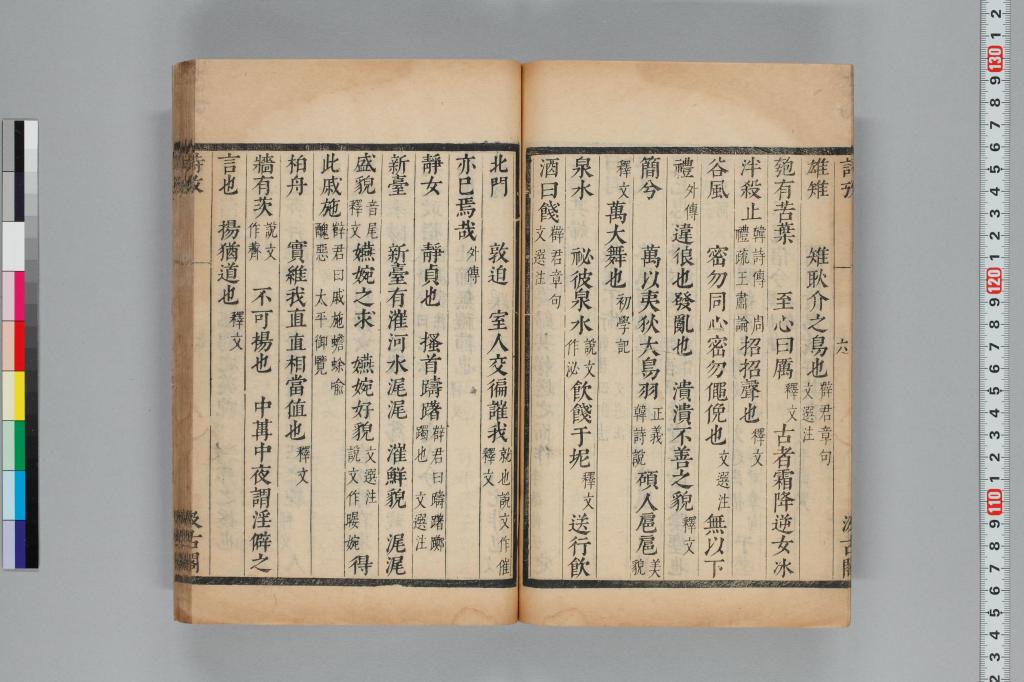 詩攷 六 汲古閣
雄雉 雉耿介之鳥也 薛君章句文選注
匏有苦葉 至心曰厲 釋文 古者霜降逆女冰
泮殺止 韓詩傳 周禮疏王肅論 招招聲也 釋文
谷風 密勿同心密勿僶俛也 文選注 無以下
禮 外傳 違很也發亂也 潰潰不善之貌 釋文
簡兮 萬以夷狄大鳥羽 正義 韓詩說 碩人扈扈 美貌
釋文 萬大舞也 初學記
泉水 祕彼泉水 說文作泌 飲餞于坭 釋文 送行飲
酒曰餞 薛君章句文選注
北門 敦迫 室人交徧讙我 就也說文作催釋文
亦已焉哉 外傳
靜女 靜貞也 搔首躊躇 薛君曰躊躇躑躅也 文選注
新臺 新臺有漼河水浘浘 漼鮮貌 浘浘
盛貌 音尾釋文 嬿婉之求 嬿婉好貌 文選注說文作暥婉 得
此戚施 薛君曰戚施蟾蜍喻醜惡 太平御覽
柏舟 實維我直直相當值也 釋文
牆有茨 說文作薺 不可揚也 中冓中夜謂淫僻之
言也 揚猶道也 釋文
詩攷 汲古閣